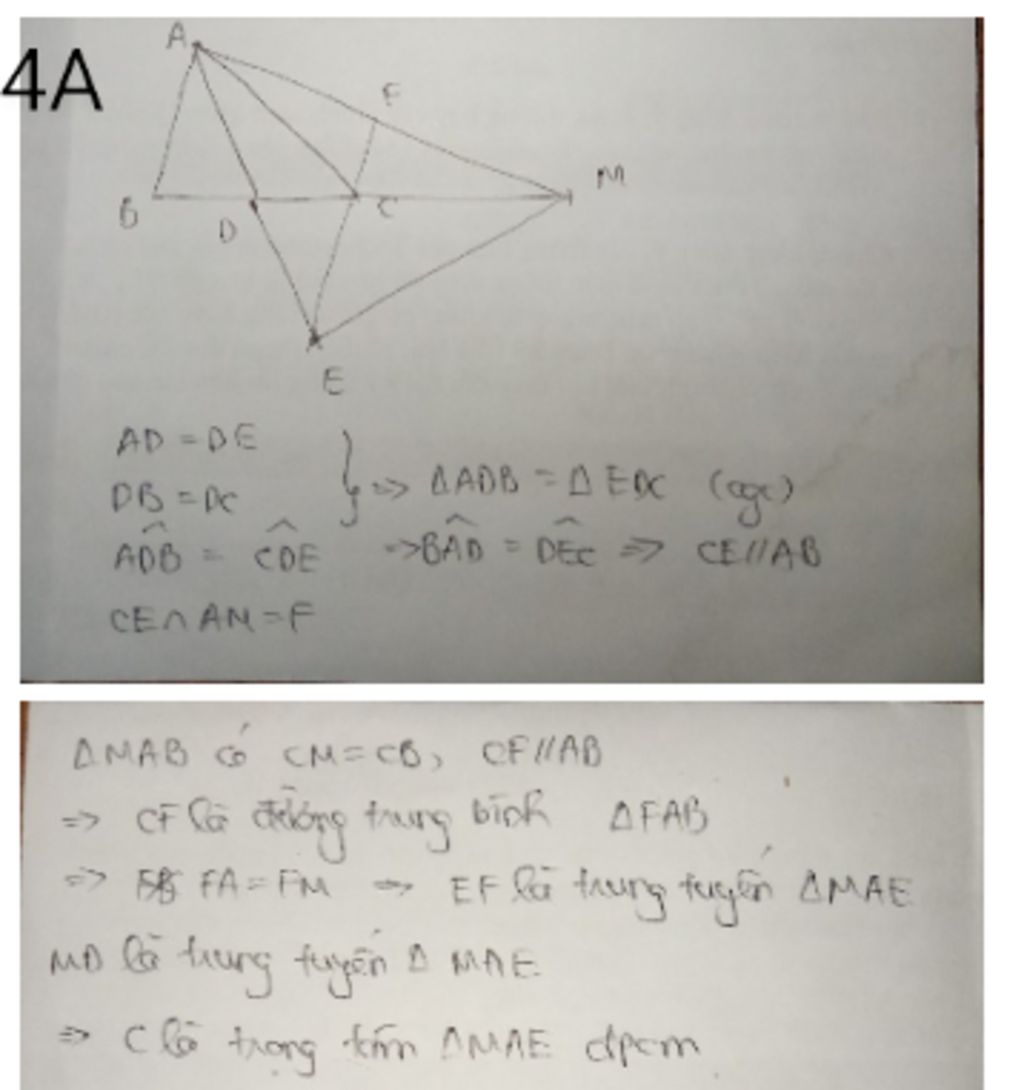 4A
A
F
M
B
D
C
E
AD = DE
DB = DC
} => ΔADB = ΔEDC (cgc)
ADB̂ = CDÊ => BAD̂ = DEĈ => CE//AB
CE∩AM=F
ΔMAB có CM=CB, CF//AB
=> CF là đường trung bình ΔFAB
=> FA=FM => EF là trung tuyến ΔMAE
MD là trung tuyến Δ MAE
=> C là trọng tâm ΔMAE đpcm